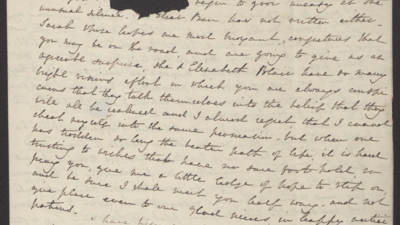 begin to grow uneasy at the
unusual silence. that Ben has not written either.
Sarah whose hopes are most buoyant, conjectures that
you may be on the road and are going to give us an
agreeable surprise, she & Elizabeth Blair have so many
bright visions afloat in which you are always conspi
cuous that they talk themselves into the belief that they
will all be realised and I almost regret that I cannot
cheat myself into the same persuasion. but when one
has trodden so long the beaten path of life, it is hard
trusting to wishes that have no sure foot hold, so
pray you, give me a little ledge of hope to step on,
and be sure I shall meet you half way. and not
give place even to our glad nieces, in happy antici
pations.